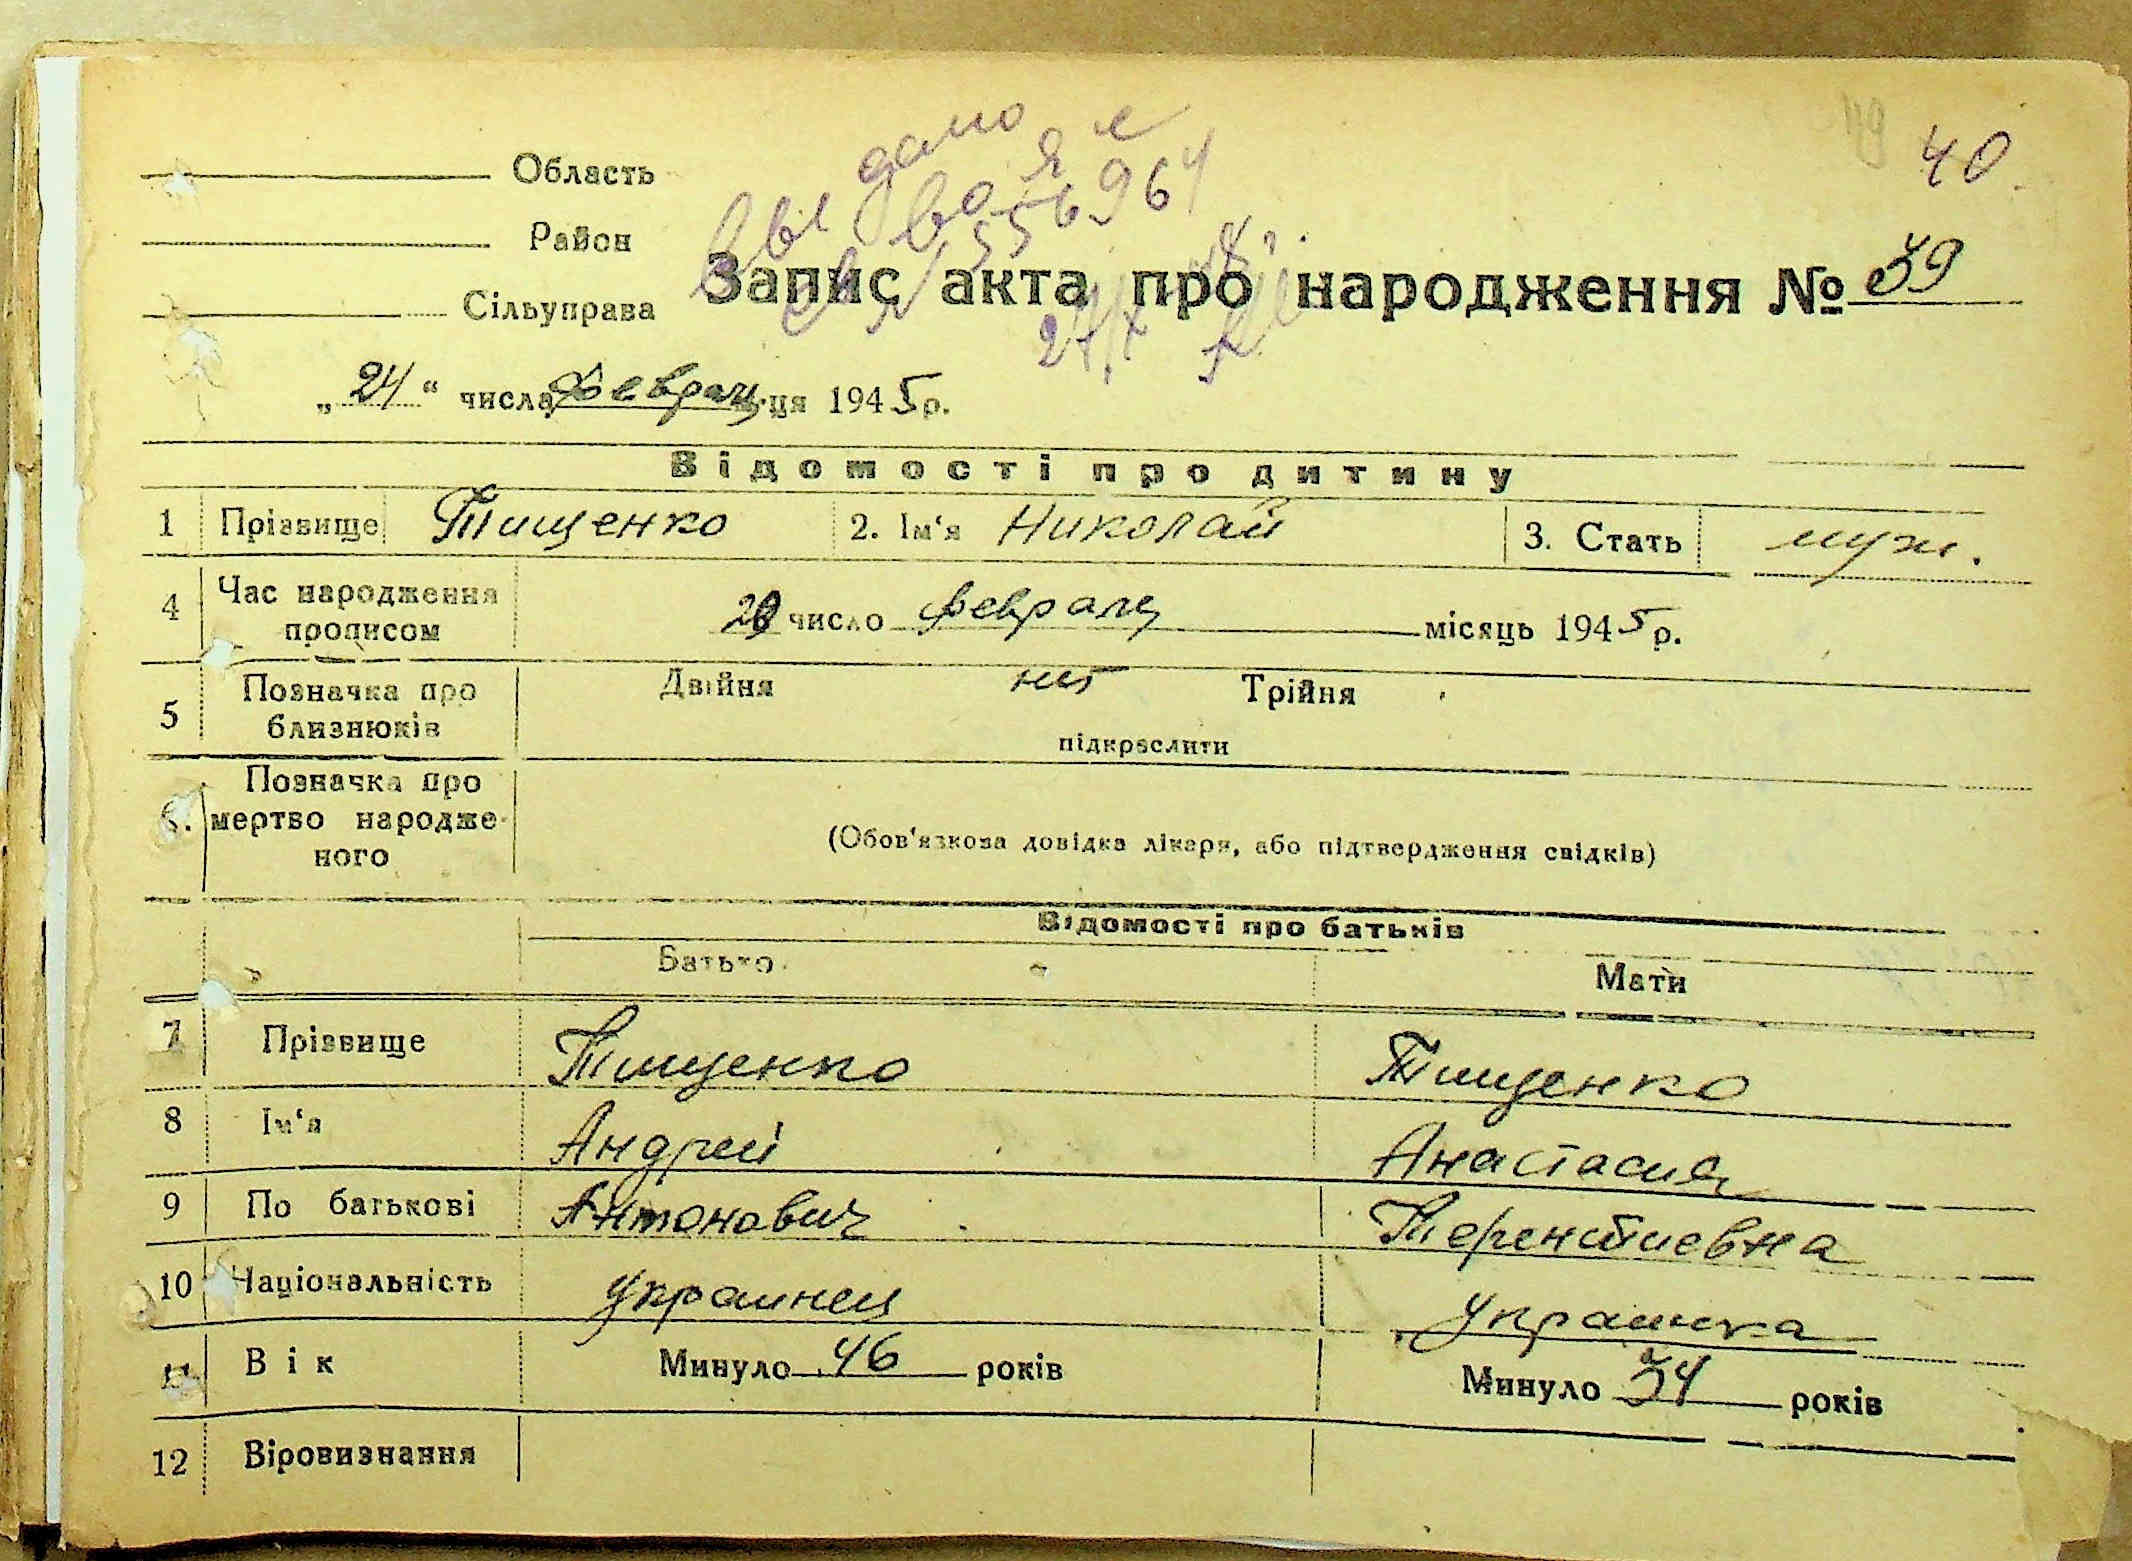 дано
40
Область
Район
556964
Сільуправа
Запис акта про народження № 39
„24“ числа феврал ця 1945 р.
Відомості про дитину
1 Прізвище Тищенко 2. Ім‘я Николай 3. Стать муж.
4 Час народження прописом число февраля місяць 1945 р.
5 Позначка про близнюків Двійня нет Трійня
підкреслити
6. Позначка про мертво народже-ного
(Обов'язкова довідка лікаря, або підтвердження свідків)
Відомості про батьків
Батько Мати
7 Прізвище Тищенко Тищенко
8 Ім‘я Андрей Анастасия
9 По батькові Антонович Терентиевна
10 Національність Украинец Украинка
11 Вік Минуло 46 років Минуло 34 років
12 Віровизнання